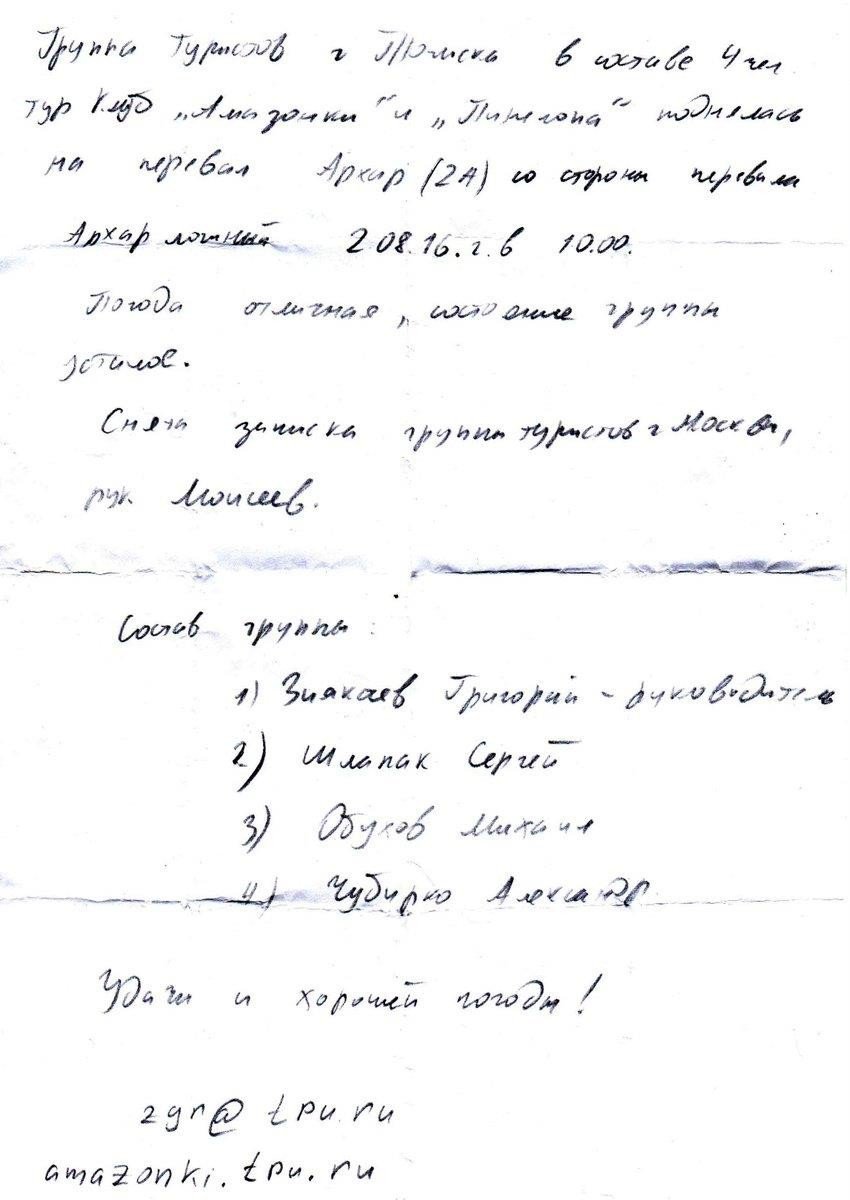 Группа туристов г Томска в составе 4 чел
тур клуб „Амазонки" и „Пилигрим" поднялась
на перевал Архар (2А) со стороны перевала
Архар ложный 2 08.16. г. в 10.00.
Погода отличная, состояние группы
Снята записка группы туристов г Москвы,
рук Моисеев.
Состав группы:
1) Зиякаев Григорий - руководитель
2) Шлапак Сергей
3) Обухов Михаил
4) Чубирко Александр
Удачи и хорошей погоды!
zgr@tpu.ru
amazonki.tpu.ru